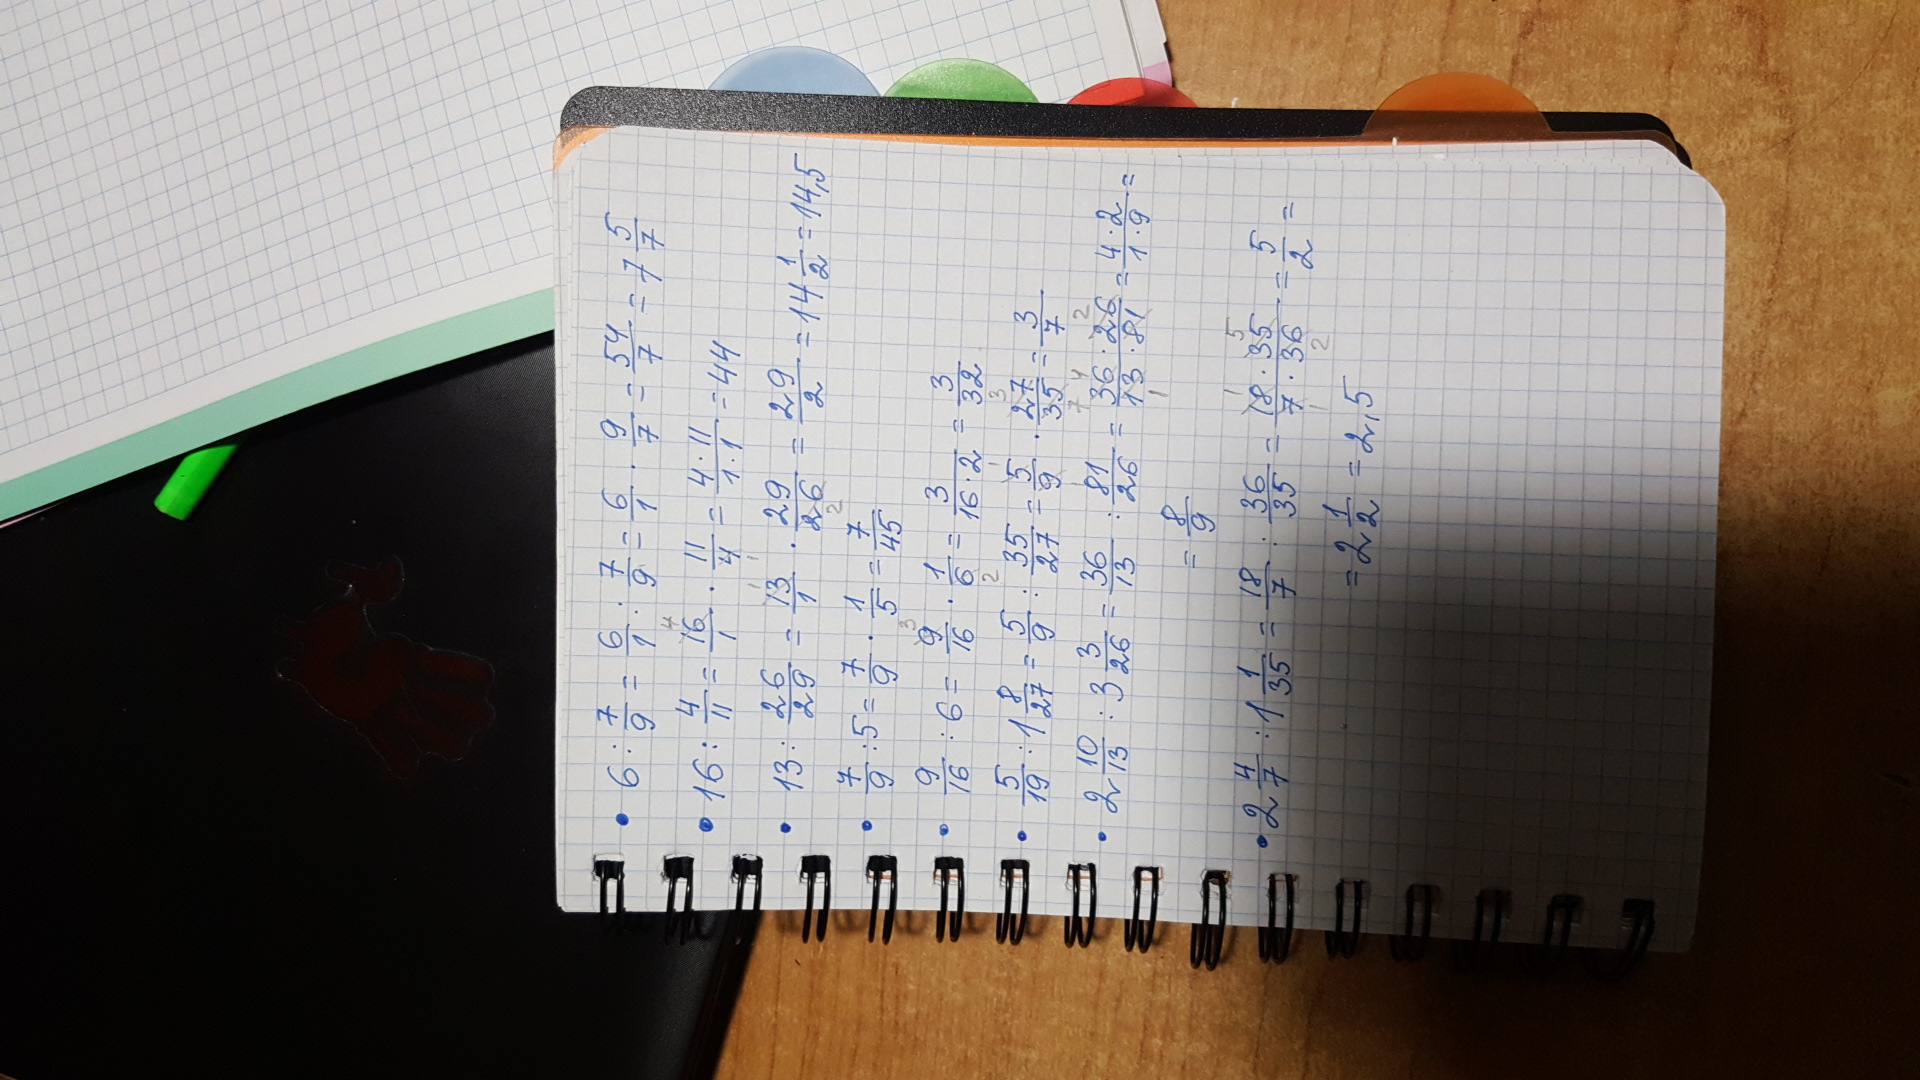 • 6 : 7/9 = 6/1 : 7/9 = 6/1 · 9/7 = 54/7 = 7 5/7
• 16 : 4/11 = 16/1 · 11/4 = 4·11/1·1 = 44
• 13 : 26/29 = 13/1 · 29/26 = 29/2 = 14 1/2 = 14,5
• 7/9 : 5 = 7/9 · 1/5 = 7/45
• 9/16 : 6 = 9/16 · 1/6 = 3/16·2 = 3/32
• 5/19 : 1 8/27 = 5/9 : 35/27 = 5/9 · 27/35 = 3/7
• 2 10/13 : 3 3/26 = 36/13 : 81/26 = 36·26/13·81 = 4·2/1·9 =
= 8/9
• 2 4/7 : 1 1/35 = 18/7 : 36/35 = 18·35/7·36 = 5/2 =
= 2 1/2 = 2,5